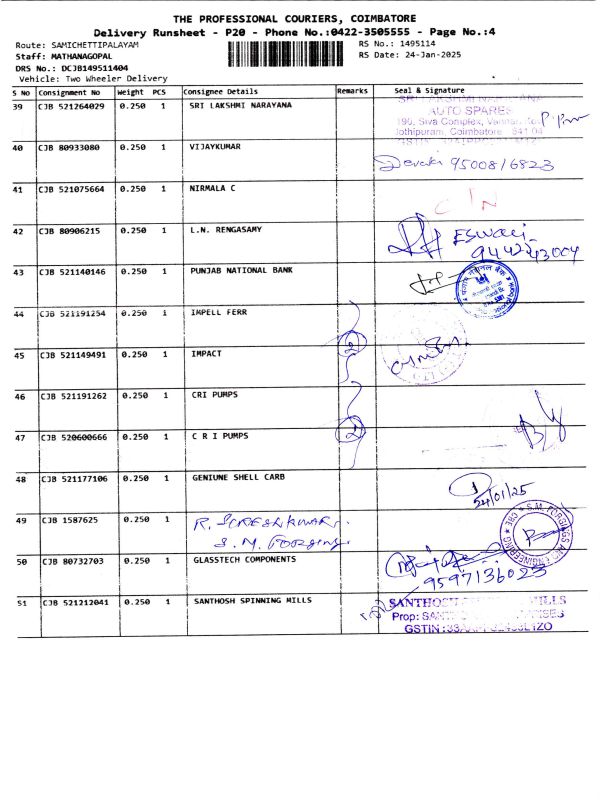 THE PROFESSIONAL COURIERS, COIMBATORE
Delivery Runsheet - P20 - Phone No.:0422-3505555 - Page No.:4
Route: SAMICHETTIPALAYAM RS No.: 1495114
Staff: MATHANAGOPAL RS Date: 24-Jan-2025
DRS No.: DCJB149511404
Vehicle: Two Wheeler Delivery
S No Consignment No Weight PCS Consignee Details Remarks Seal & Signature
39 CJB 521264029 0.250 1 SRI LAKSHMI NARAYANA
AUTO SPARES
190, Siva Complex,
Jothipuram, Coimbatore
40 CJB 80933080 0.250 1 VIJAYKUMAR
Devaki 9500816823
41 CJB 521075664 0.250 1 NIRMALA C
C N
42 CJB 80906215 0.250 1 L.N. RENGASAMY
ESWARI
9442243004
43 CJB 521140146 0.250 1 PUNJAB NATIONAL BANK
44 CJB 521191254 0.250 1 IMPELL FERR
2
45 CJB 521149491 0.250 1 IMPACT
46 CJB 521191262 0.250 1 CRI PUMPS
47 CJB 520600666 0.250 1 C R I PUMPS
2
48 CJB 521177106 0.250 1 GENIUNE SHELL CARB
24/01/25
49 CJB 1587625 0.250 1 R. SURESHKUMAR,
S.M. Forgings
S.M. FORGINGS AND ENGINEERING CBE
50 CJB 80732703 0.250 1 GLASSTECH COMPONENTS
9597136023
51 CJB 521212041 0.250 1 SANTHOSH SPINNING MILLS
SANTHOSH MILLS
Prop:
GSTIN